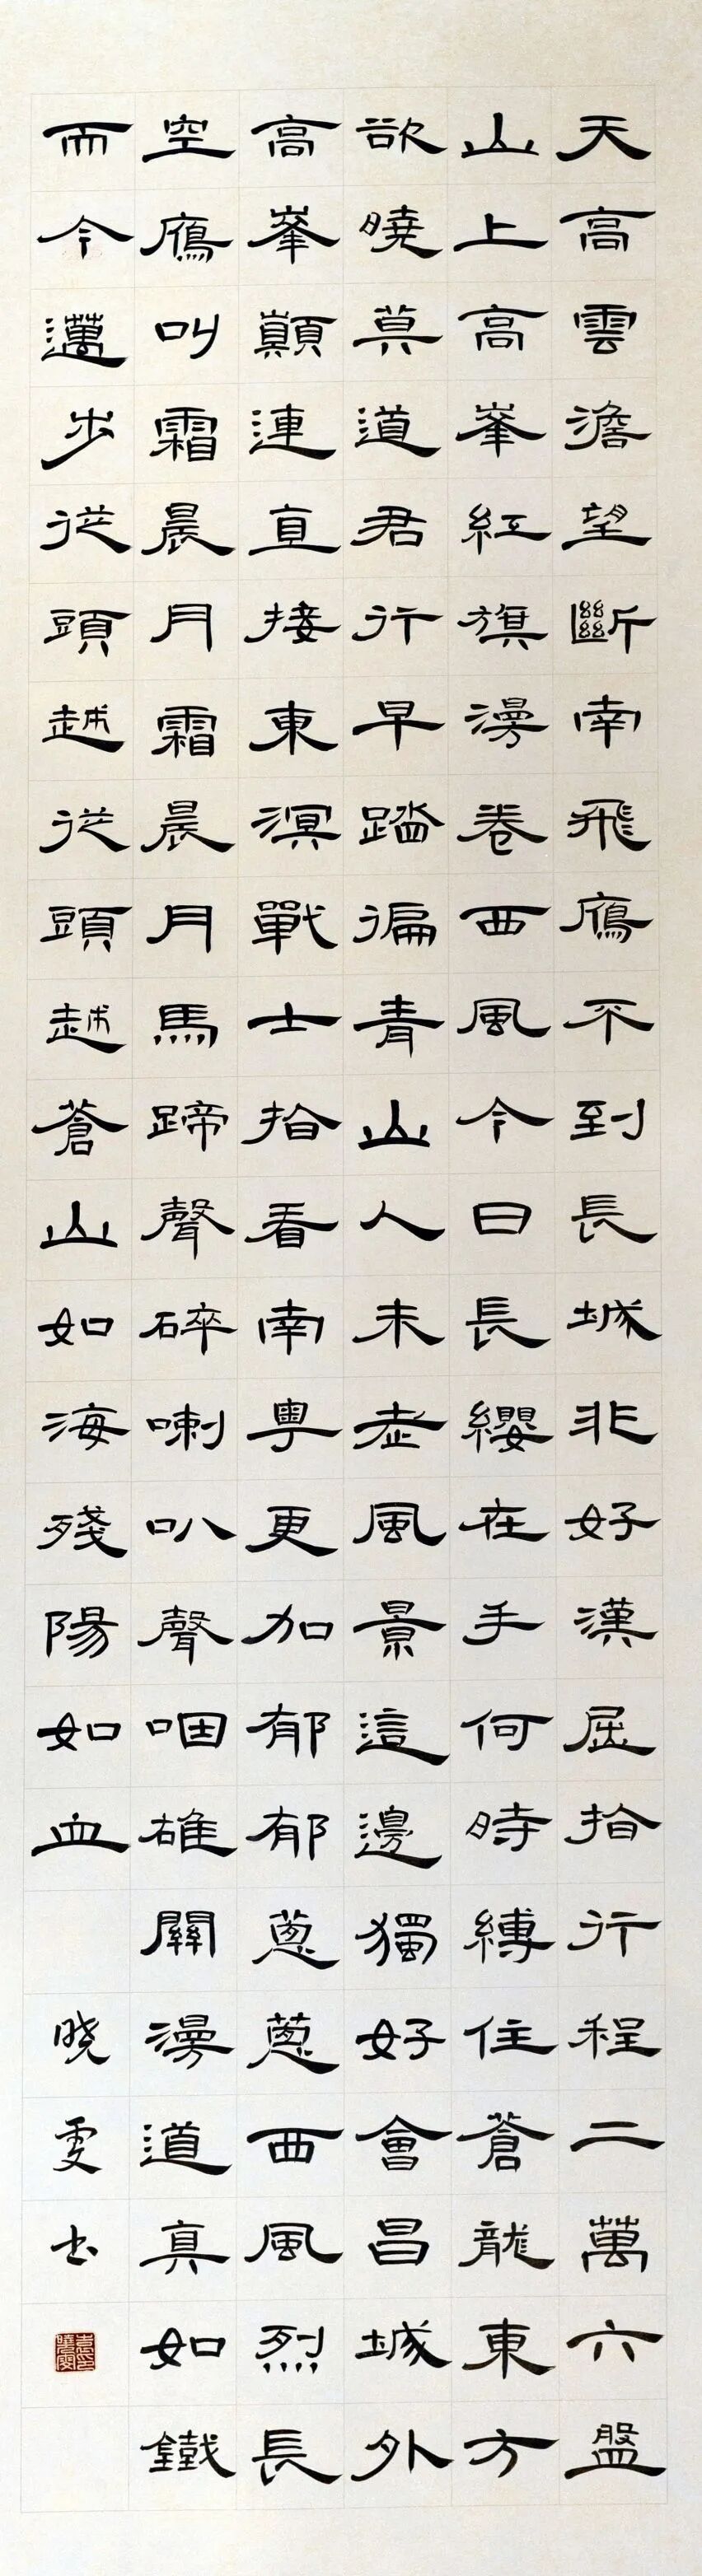 天高雲澹望斷南飛鴈不到長城非好漢屈指行程二萬六盤
山上高峯紅旗漫卷西風今日長纓在手何時縛住蒼龍東方
欲曉莫道君行早踏徧青山人未老風景這邊獨好會昌城外
高峯顛連直接東溟戰士指看南粵更加郁郁蔥蔥西風烈長
空鴈叫霜晨月霜晨月馬蹄聲碎喇叭聲咽雄關漫道真如鐵
而今邁步從頭越從頭越蒼山如海殘陽如血
晓雯书